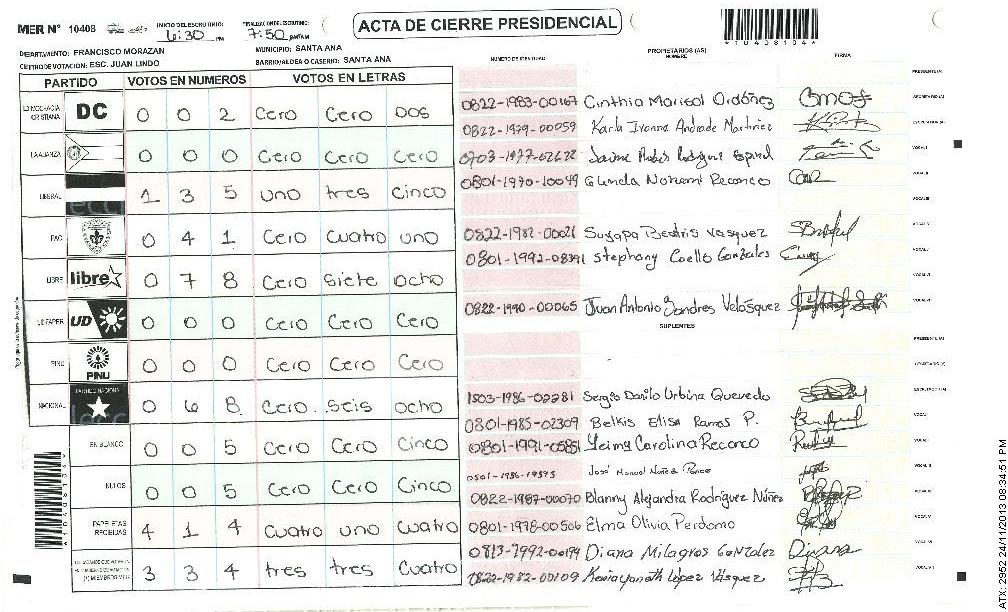 MER N° 10408 INICIO DEL ESCRUTINIO: 6:30 PM FINALIZACION DEL ESCRUTINIO: 7:50 PM/AM
ACTA DE CIERRE PRESIDENCIAL
*10408104*
DEPARTAMENTO: FRANCISCO MORAZAN MUNICIPIO: SANTA ANA
CENTRO DE VOTACION: ESC. JUAN LINDO BARRIO/ALDEA O CASERIO: SANTA ANA
PARTIDO VOTOS EN NUMEROS VOTOS EN LETRAS
DEMOCRACIA CRISTIANA DC 0 0 2 Cero Cero Dos
LA ALIANZA 0 0 0 Cero Cero Cero
LIBERAL 1 3 5 uno tres cinco
PAC 0 4 1 Cero cuatro uno
LIBRE libre 0 7 8 Cero siete ocho
UD FAPER UD 0 0 0 Cero Cero Cero
PINU PINU 0 0 0 Cero Cero Cero
NACIONAL PARTIDO NACIONAL 0 6 8 Cero seis ocho
EN BLANCO 0 0 5 Cero Cero Cinco
NULOS 0 0 5 Cero Cero Cinco
PAPELETAS RECIBIDAS 4 1 4 Cuatro uno Cuatro
3 3 4 tres tres Cuatro
*10408104*
NUMERO DE IDENTIDAD PROPIETARIOS (AS) NOMBRE FIRMA
PRESIDENTE (A)
0822-1983-00167 Cinthia Marisol Ordóñez SECRETARIO (A)
0822-1979-00059 Karla Ivonne Andrade Martinez ESCRUTADOR (A)
Jaime Rodriguez VOCAL I
0801-1970-10049 Reconco VOCAL II
VOCAL III
0822-1982-00021 Suyapa Beatris Vasquez VOCAL IV
0801-1992-08391 Stephany Coello Gonzales VOCAL V
VOCAL VI
0822-1990-00065 Juan Antonio Sendres Velásquez VOCAL VII
SUPLENTES
PRESIDENTE (A)
SECRETARIO (A)
1503-1986-02281 Sergio Danilo Urbina Quevedo ESCRUTADOR (A)
0801-1985-02309 Belkis Elisa Ramos P. VOCAL I
0801-1991-05851 Yeimy Carolina Reconco VOCAL II
José Manuel Núñez Ponce VOCAL III
0822-1987-00070 Blanny Alejandra Rodríguez Núñez VOCAL IV
0801-1978-00506 Elma Olivia Perdomo VOCAL V
Diana Milagros Gonzalez VOCAL VI
0822-1982-00109 López Vásquez VOCAL VII
24/11/2013 08:34:51 PM